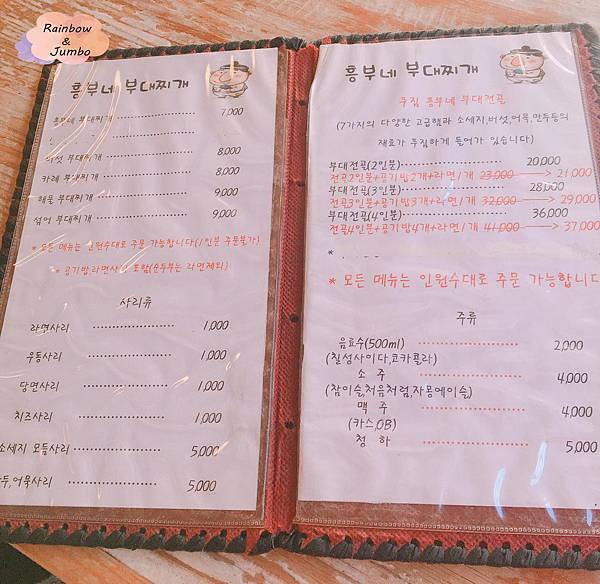 Rainbow
&
Jumbo
흥부네 부대찌개
흥부네 부대찌개 7,000
버섯 부대찌개 8,000
카레 부대찌개 8,000
해물 부대찌개 9,000
섞어 부대찌개 9,000
* 모든 메뉴는 인원수대로 주문 가능합니다(1인분 주문불가)
* 공기밥,라면사리 포함(순두부는 라면제외)
사리류
라면사리 1,000
우동사리 1,000
당면사리 1,000
치즈사리 1,000
소세지 모듬사리 5,000
만두,어묵사리 5,000
흥부네 부대찌개
푸짐 흥부네 부대전골
(7가지의 다양한 고급햄과 소세지,버섯,어묵,만두등의
재료가 푸짐하게 들어가 있습니다)
부대전골(2인분) 20,000
전골2인분+공기밥2개+라면1개 23,000 → 21,000
부대전골(3인분) 28,000
전골3인분+공기밥3개+라면1개 32,000 → 29,000
부대전골(4인분) 36,000
전골4인분+공기밥4개+라면1개 41,000 → 37,000
*
* 모든 메뉴는 인원수대로 주문 가능합니다
주류
음료수(500ml) 2,000
(칠성사이다,코카콜라)
소 주 4,000
(참이슬,처음처럼,자몽에이슬)
맥 주 4,000
(카스,OB)
청 하 5,000